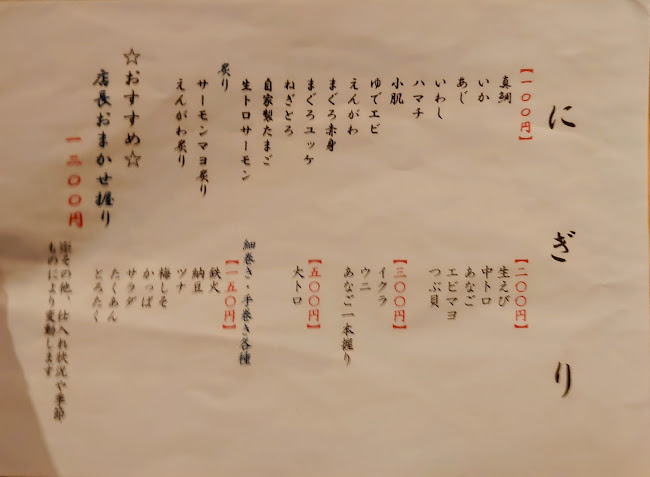 にぎり
【一〇〇円】
真鯛
いか
あじ
いわし
ハマチ
小肌
ゆでエビ
えんがわ
まぐろ赤身
まぐろユッケ
ねぎとろ
自家製たまご
生トロサーモン
炙り
サーモンマヨ炙り
えんがわ炙り
【二〇〇円】
生えび
中トロ
あなご
エビマヨ
つぶ貝
【三〇〇円】
イクラ
ウニ
あなご一本握り
【五〇〇円】
大トロ
細巻き・手巻き各種
【一五〇円】
鉄火
納豆
ツナ
梅しそ
かっぱ
サラダ
たくあん
とろたく
☆おすすめ☆
店長おまかせ握り
一三〇〇円
その他、仕入れ状況や季節
ものにより変動します